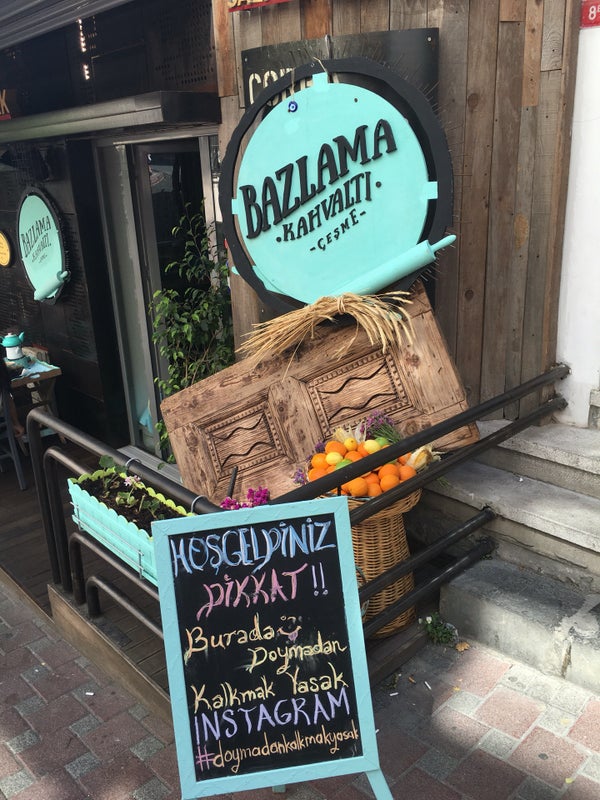 BAZLAMA
·KAHVALTI·
-ÇEŞME-
BAZLAMA
KAHVALTI
HOŞGELDİNİZ
DİKKAT!!
Burada
Doymadan
Kalkmak Yasak
INSTAGRAM
#doymadankalkmakyasak
8